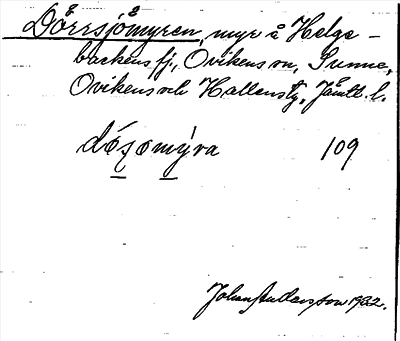 Dörrsjömyren, myr å Helge-
backens fj., Ovikens sn, Sunne,
Ovikens och Hallens tg, Jämtl. l.
dósomýra 109
Johan Andersson 1922.